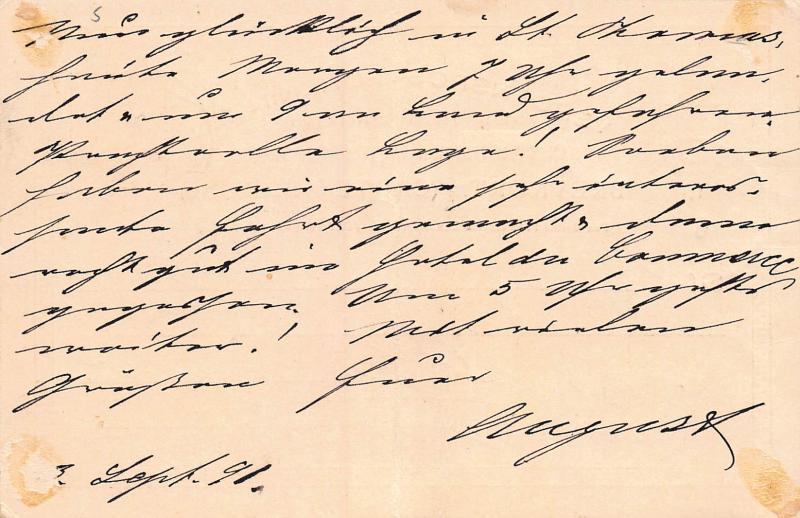 Nun glücklich in St. Thomas,
heute Morgen 7 Uhr gelan-
det u. um 9 an Land gefahren.
Prachtvolle Lage! Soeben
haben wir eine sehr interes-
sante Fahrt gemacht u. dann
recht gut im Hotel du Commerce
gegessen. Um 5 Uhr geht's
weiter! Mit vielen
Grüßen Euer
August
3. Sept. 91.